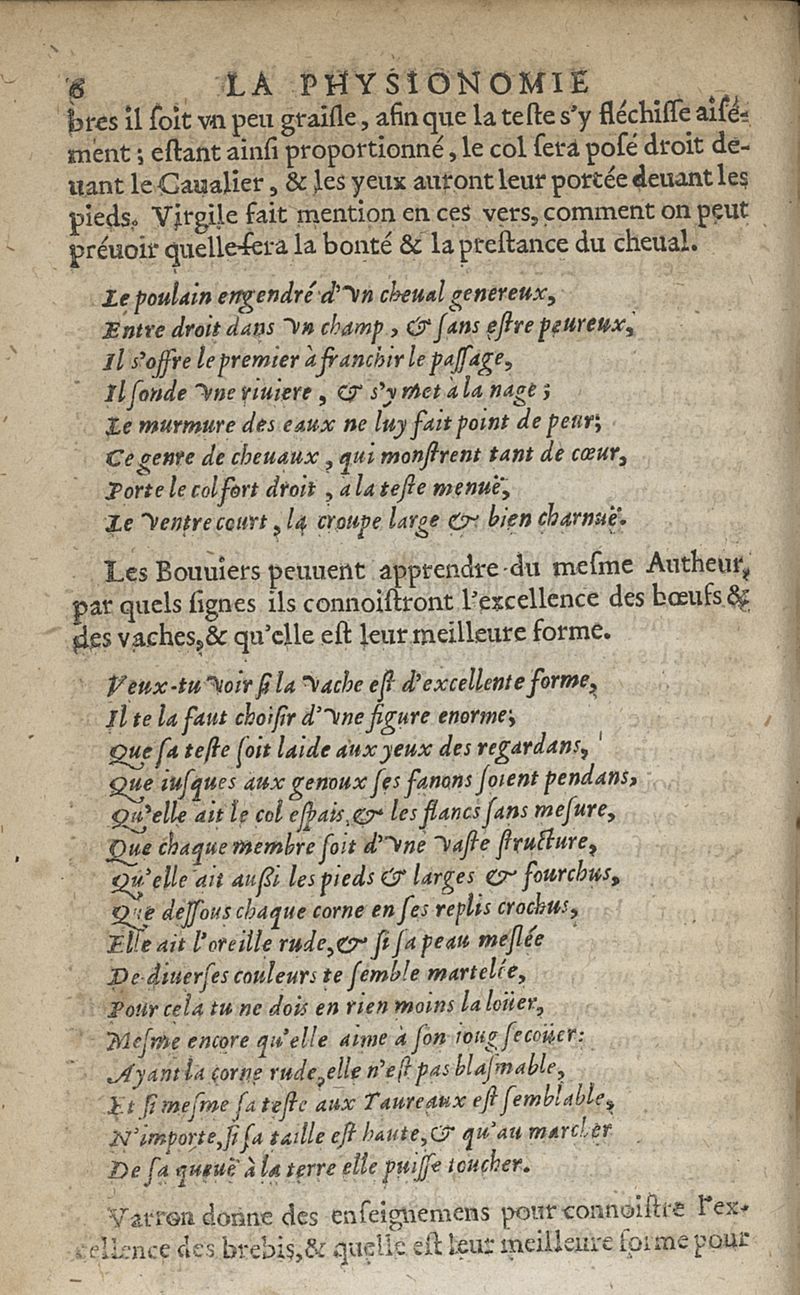 6 LA PHYSIONOMIE
bres il ſoit vn peu graiſle, afin que la teſte s'y fléchiſſe aiſé-
ment ; eſtant ainſi proportionné, le col ſera poſé droit de-
uant le Caualier, & les yeux auront leur portée deuant les
pieds. Virgile fait mention en ces vers, comment on peut
préuoir quelle ſera la bonté & la preſtance du cheual.
Le poulain engendré d'vn cheual genereux,
Entre droit dans vn champ, & ſans eſtre peureux,
Il s'offre le premier à franchir le paſſage,
Il ſonde vne riuiere, & s'y met à la nage ;
Le murmure des eaux ne luy fait point de peur;
Ce genre de cheuaux, qui monſtrent tant de cœur,
Porte le col fort droit, a la teſte menuë,
Le ventre court, la croupe large & bien charnuë.
Les Bouuiers peuuent apprendre du meſme Autheur,
par quels ſignes ils connoiſtront l'excellence des bœufs &
des vaches, & qu'elle eſt leur meilleure forme.
Veux-tu voir ſi la vache eſt d'excellente forme,
Il te la faut choiſir d'vne figure enorme;
Que ſa teſte ſoit laide aux yeux des regardans,
Que iuſques aux genoux ſes fanons ſoient pendans,
Qu'elle ait le col eſpais, & les flancs ſans meſure,
Que chaque membre ſoit d'vne vaſte ſtructure,
Qu'elle ait auſſi les pieds & larges & fourchus,
Que deſſous chaque corne en ſes replis crochus,
Elle ait l'oreille rude, & ſi ſa peau meſlée
De diuerſes couleurs te ſemble martelée,
Pour cela tu ne dois en rien moins la loüer,
Meſme encore qu'elle aime à ſon ioug ſecoüer:
Ayant la corne rude, elle n'eſt pas blaſmable,
Et ſi meſme ſa teſte aux Taureaux eſt ſemblable,
N'importe, ſi ſa taille eſt haute, & qu'au marcher
De ſa queuë à la terre elle puiſſe toucher.
Varron donne des enſeignemens pour connoiſtre l'ex-
cellence des brebis, & quelle eſt leur meilleure forme pour